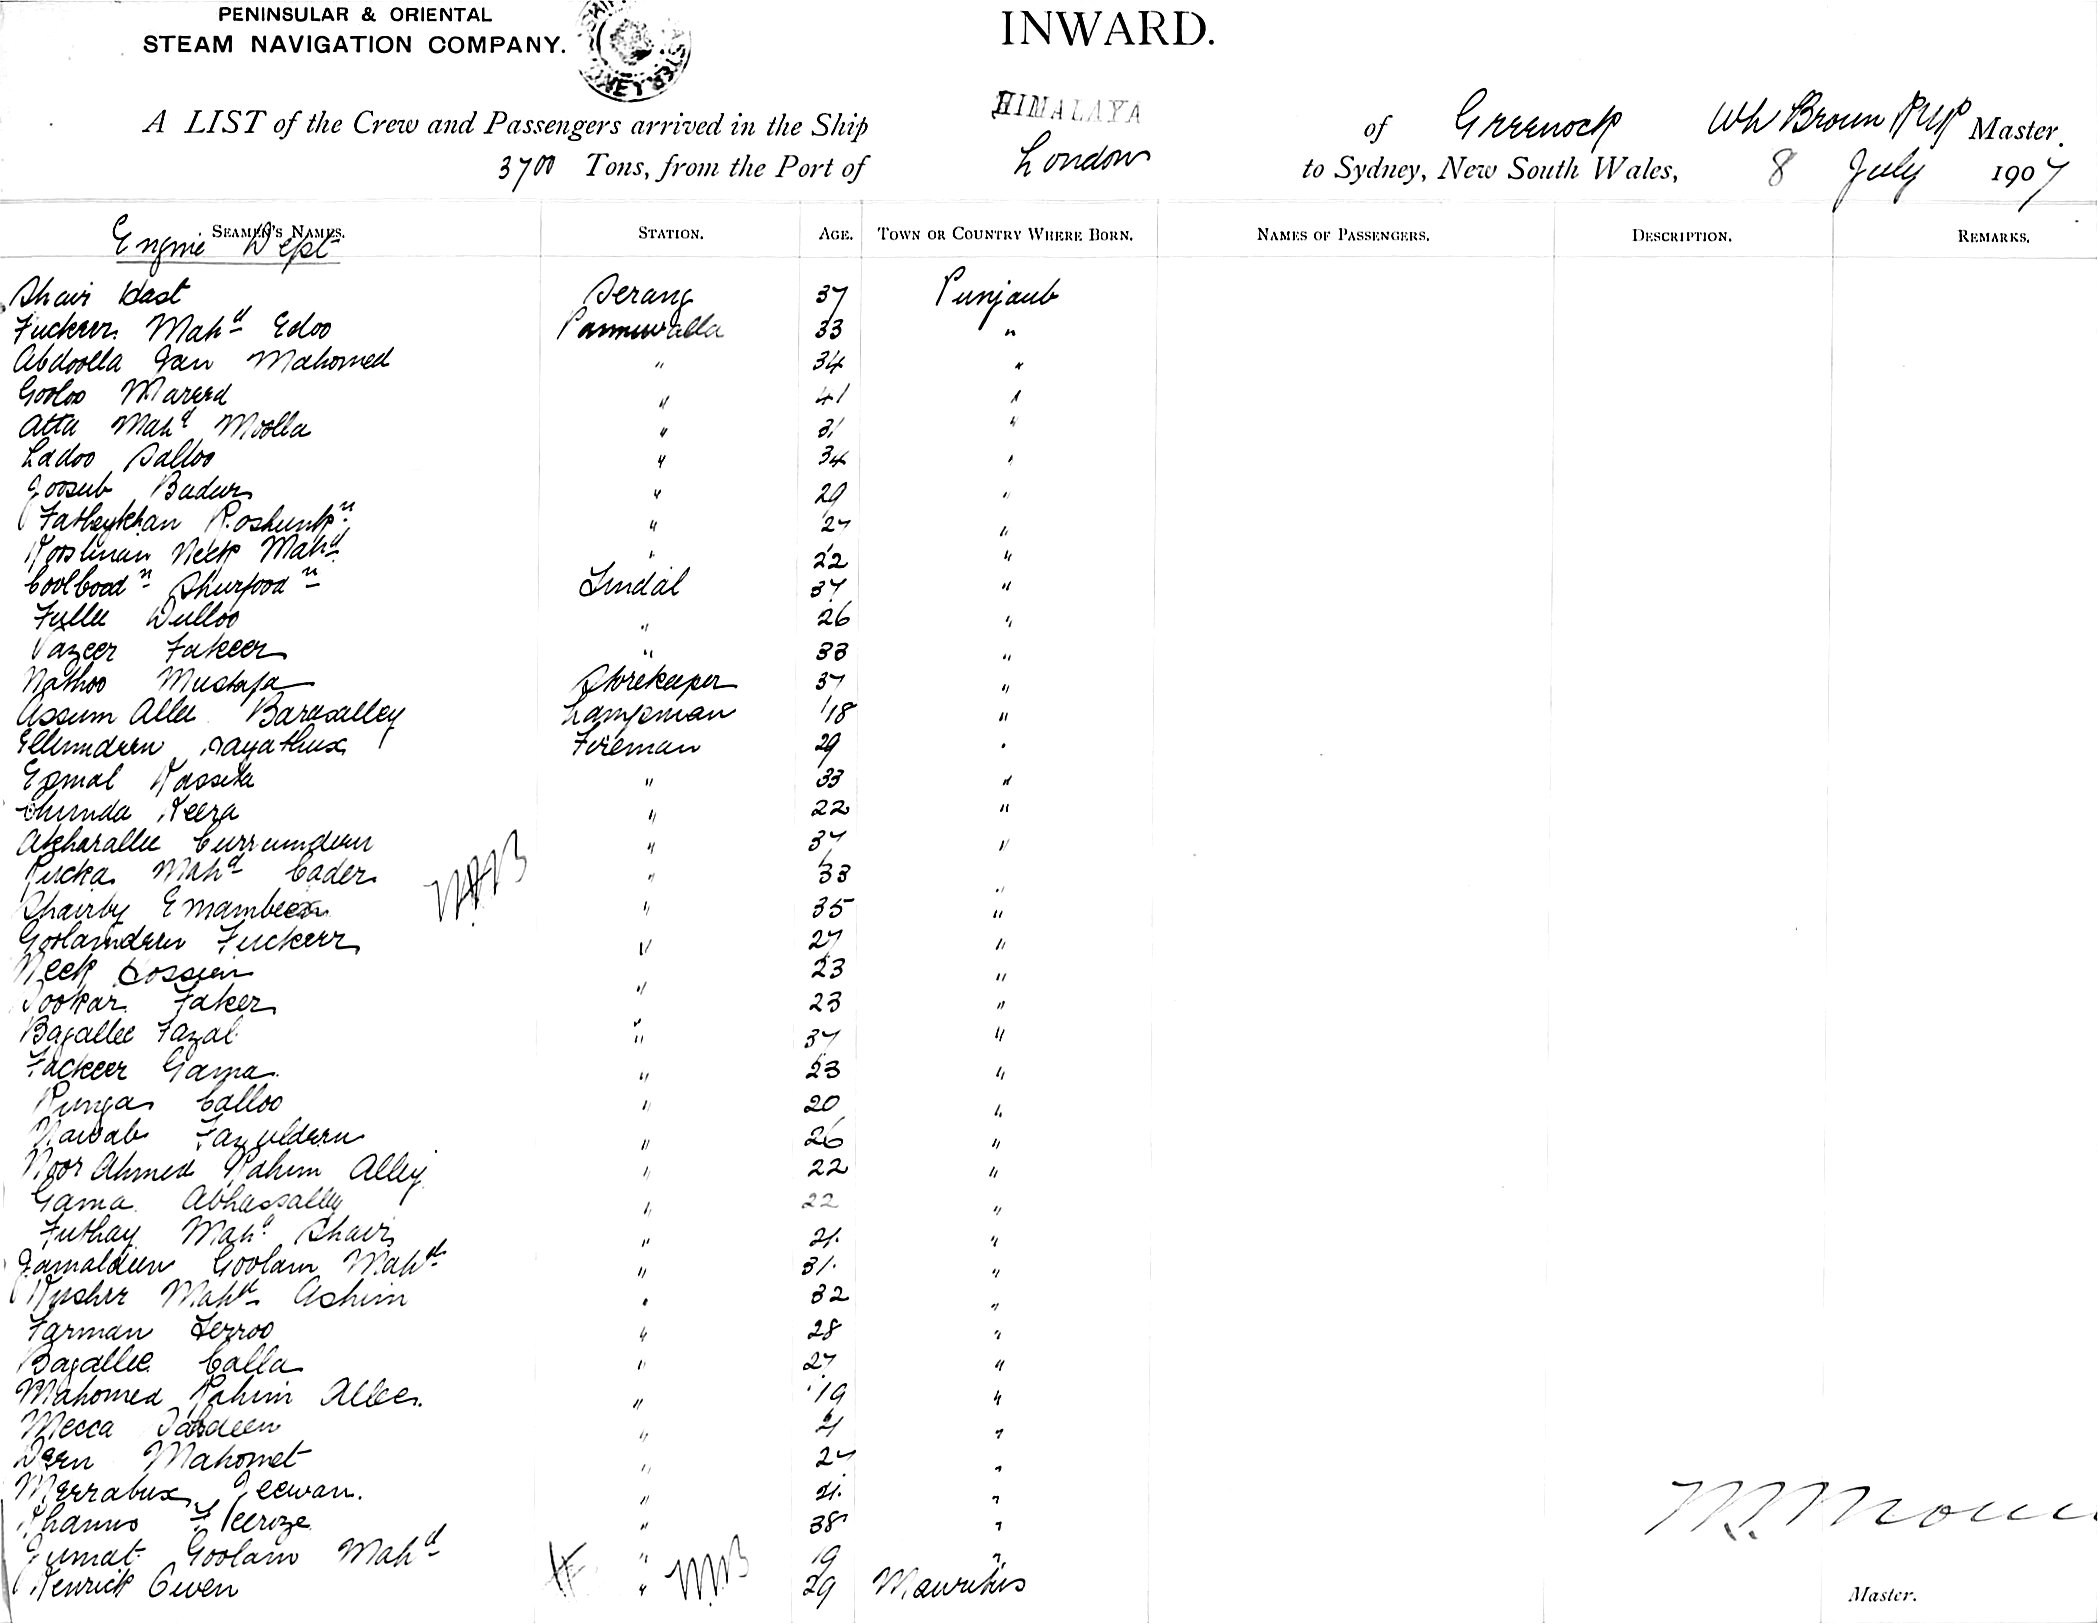 PENINSULAR & ORIENTAL
STEAM NAVIGATION COMPANY.
INWARD.
A LIST of the Crew and Passengers arrived in the Ship HIMALAYA of Greenock Wh Brown RNR Master.
3700 Tons, from the Port of London to Sydney, New South Wales, 8 July 1907
SEAMEN'S NAMES. STATION. AGE. TOWN OR COUNTRY WHERE BORN. NAMES OF PASSENGERS. DESCRIPTION. REMARKS.
Engine Dept
Shair Hast Serang 37 Punjaub
Fuckeer Mahd Edoo 33 "
Abdoolla Jan Mahomed " 34 "
Gooloo Mareed " 41 "
Atta Mahd Moolla " 31 "
Ladoo Salloo " 34 "
Joosub Budur " 29 "
Fatteykhan Roshunkn " 27 "
Neek Mahd " 22 "
Coolboodn Shurfoodn Tindal 37 "
Fullee Dulloo " 26 "
Vazeer Fakeer " 33 "
Nathoo Mustafa Storekeeper 37 "
Assum Allee Baraxalley Lampman 18 "
Ellumdeen Fireman 29 "
Esmal " 33 "
Chunda Heera " 22 "
Akharallee Currumdeen " 37 "
Mahd Cader " 33 "
Shairby Emambux " 35 "
Goolamdeen Fuckeer " 27 "
Neek Hossein " 23 "
Fakeer " 23 "
Bagallee Fazal " 37 "
Fackeer Gama " 23 "
Runga Calloo " 20 "
Nawab Fazuldeen " 26 "
Noor Ahmed Rahim Alley " 22 "
Gama Abhassalley " 22 "
Futhay Mahd Shair " 21 "
Jamaldeen Goolam Mahd " 31 "
Mahd Ashim " 32 "
Farman Ferroo " 28 "
Bagallee Calla " 27 "
Mahomed Rahim Allee " 19 "
Mecca " 21 "
Deen Mahomet " 27 "
Merrabux Jeewan " 21 "
Khanno Feeroze " 38 "
Jumat Goolam Mahd " 19 "
Henrick Owen " 29 Mauritius
Master.